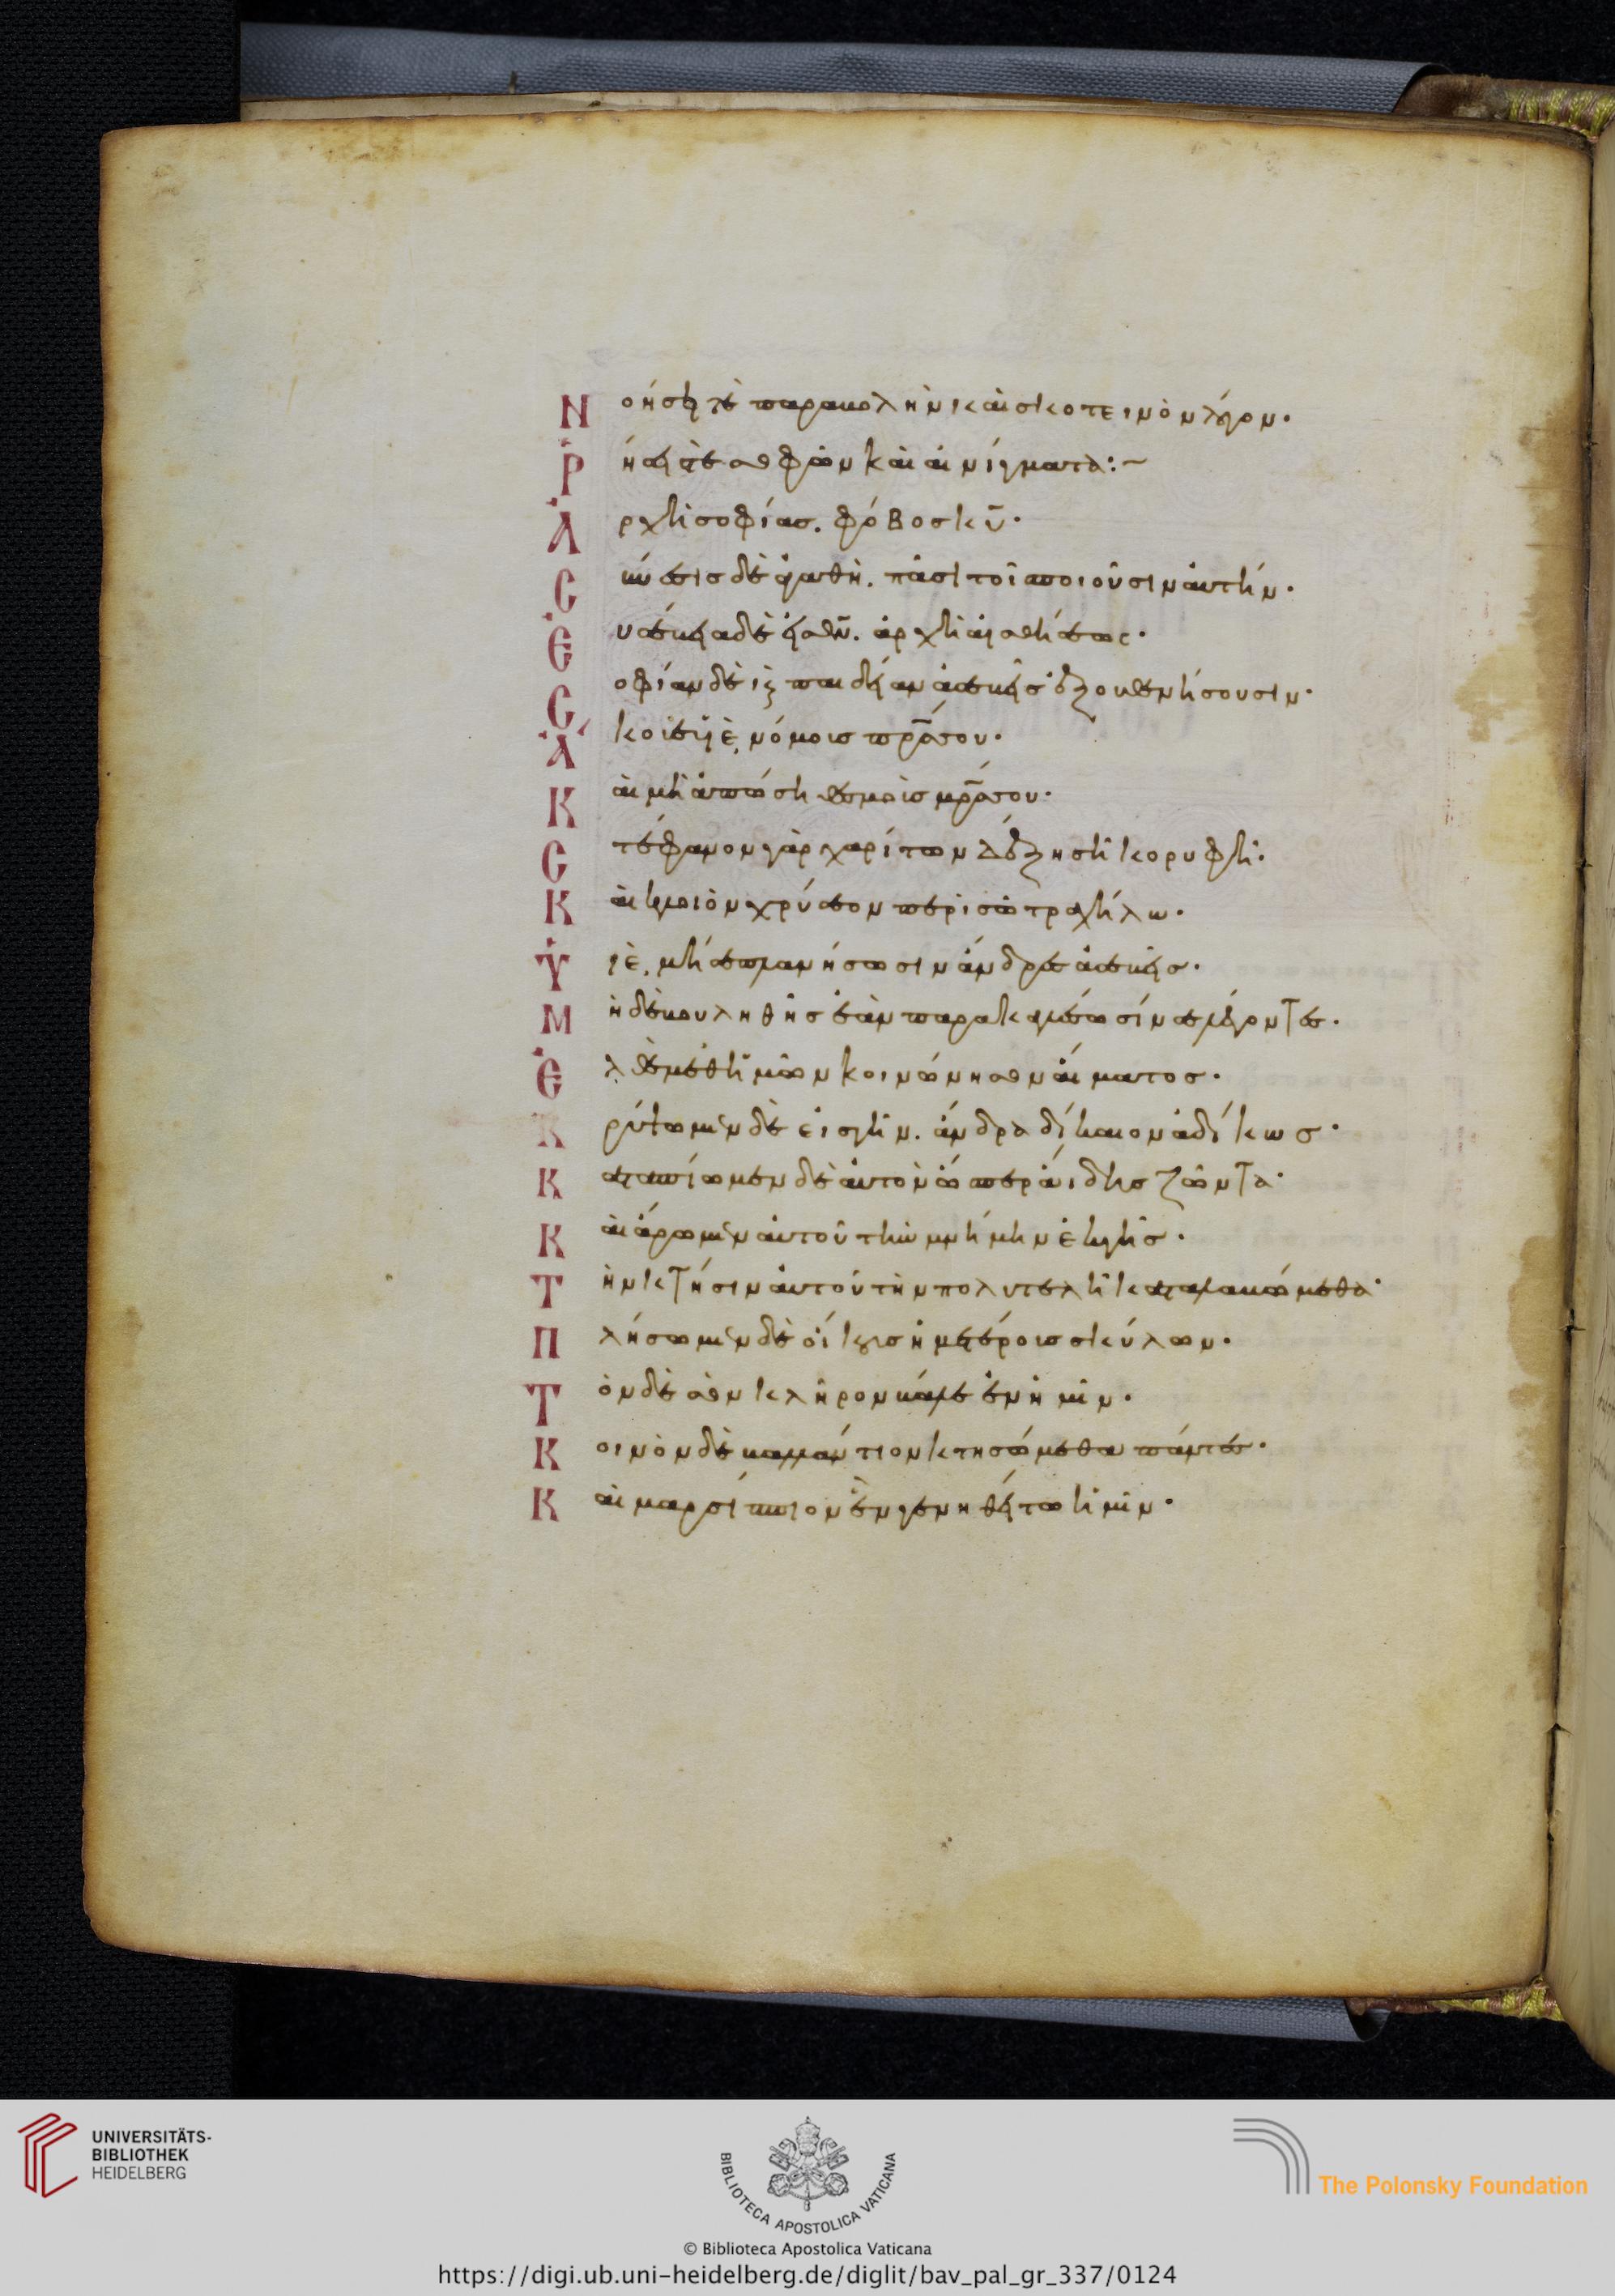 Νοήσει τὲ παραβολὴν, καὶ σκοτεινὸν λόγον·
Ῥήσεις τὲ σοφῶν καὶ αἰνίγματα:~
Ἀρχὴ σοφίας. φόβος κυ̅·
Σύνεσις δὲ ἀγαθὴ. πᾶσι τοῖς ποιοῦσιν αὐτήν·
Εὐσέβεια δὲ εἰς θν̅. ἀρχὴ αἰσθήσεως·
Σοφίαν δὲ καὶ παιδείαν ἀσεβεῖς ἐξουθενήσουσιν·
Ἄκουε υἱὲ, νόμους πρ̅ς σου·
Καὶ μὴ ἀπώσῃ θεσμοὺς μρ̅ς σου·
Στέφανον γὰρ χαρίτων δέξῃ σῇ κορυφῇ·
Καὶ κλοιὸν χρύσεον περὶ σῶ τραχήλω·
Υἱὲ, μή σε πλανήσωσιν ἄνδρες ἀσεβεῖς·
Μὴ δὲ βουληθῇς ἐὰν παρακαλέσωσί σε λέγοντες·
Ἐλθὲ μεθ ἡμῶν κοινώνησον αἵματος·
Κρύψωμεν δὲ εἰς γῆν. ἄνδρα δίκαιον ἀδίκως·
Καταπίωμεν δὲ αὐτὸν ὥσπερ ἅιδης ζῶντα·
Καὶ ἄρωμεν αὐτοῦ τὴν μνήμην ἐκ γῆς·
Τὴν κτῆσιν αὐτοῦ τὴν πολυτελῆ καταλαβώμεθα·
Πλήσωμεν δὲ οἴκους ἡμετέρους σκύλων·
Τὸν δὲ σὸν κλῆρον βάλε ἐν ἡμῖν·
Κοινὸν δὲ βαλλάντιον κτησώμεθα πάντες·
Καὶ μαρσίππιον ἓν γενηθήτω ἡμῖν·
UNIVERSITÄTS-
BIBLIOTHEK
HEIDELBERG
BIBLIOTECA APOSTOLICA VATICANA
The Polonsky Foundation
© Biblioteca Apostolica Vaticana
https://digi.ub.uni-heidelberg.de/diglit/bav_pal_gr_337/0124